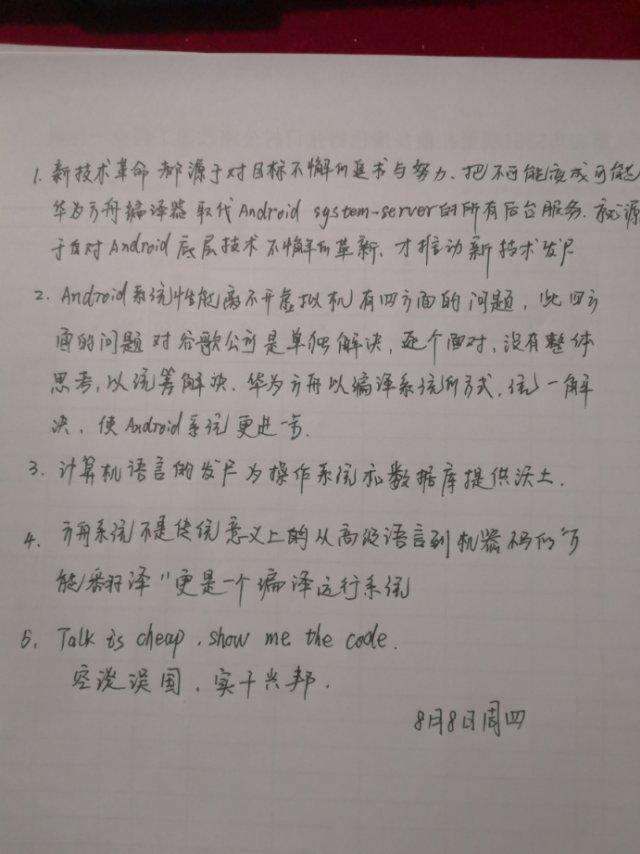 1. 新技术革命都源于对目标不懈的追求与努力、把不可能变成可能
华为方舟编译器取代Android system-server的所有后台服务.就源
于自对Android底层技术不懈的革新.才推动新技术发尸
2. Android系统性能离不开虚拟机有四方面的问题,此四方
面的问题对谷歌公司是单独解决,逐个面对,没有整体
思考,以统筹解决.华为方舟以编译系统的方式,统一解
决,使Android系统更进一步.
3. 计算机语言的发尸为操作系统和数据库提供沃土.
4. 方舟系统不是传统意义上的从高级语言到机器码的"万
能翻译"更是一个编译运行系统
5. Talk is cheap,show me the code.
空谈误国,实干兴邦.
8月8日周四